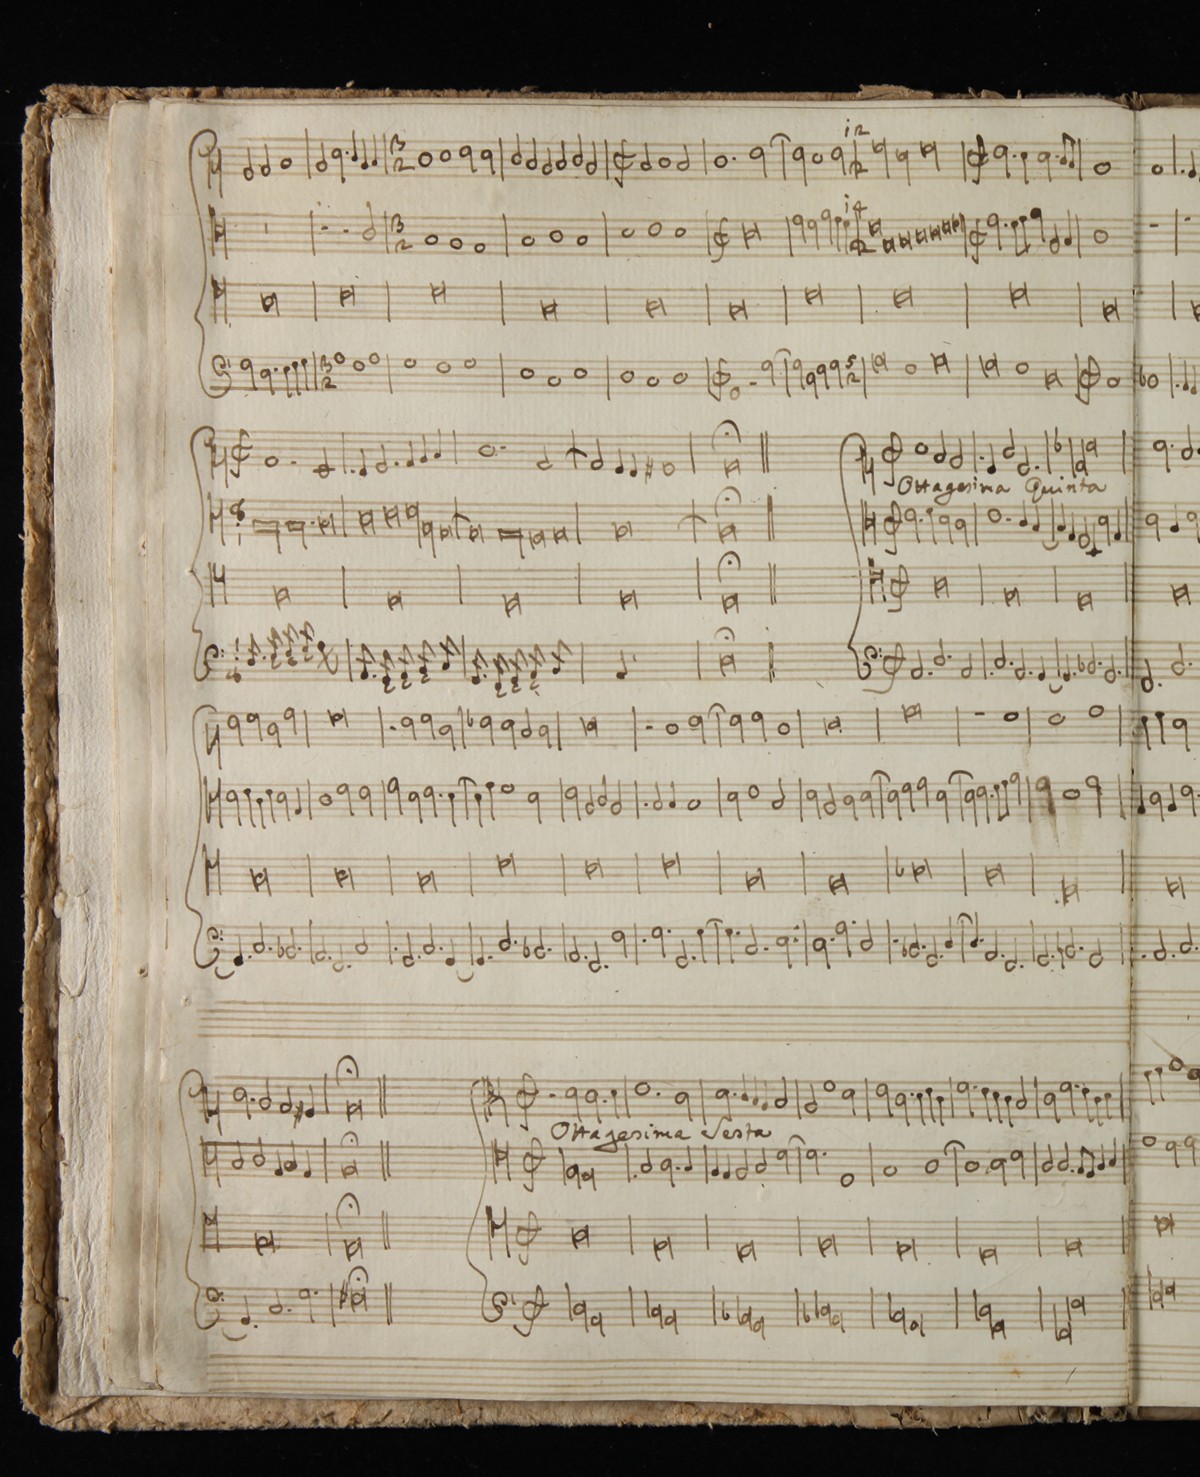 Ottagesima Quinta
Ottagesima Sesta